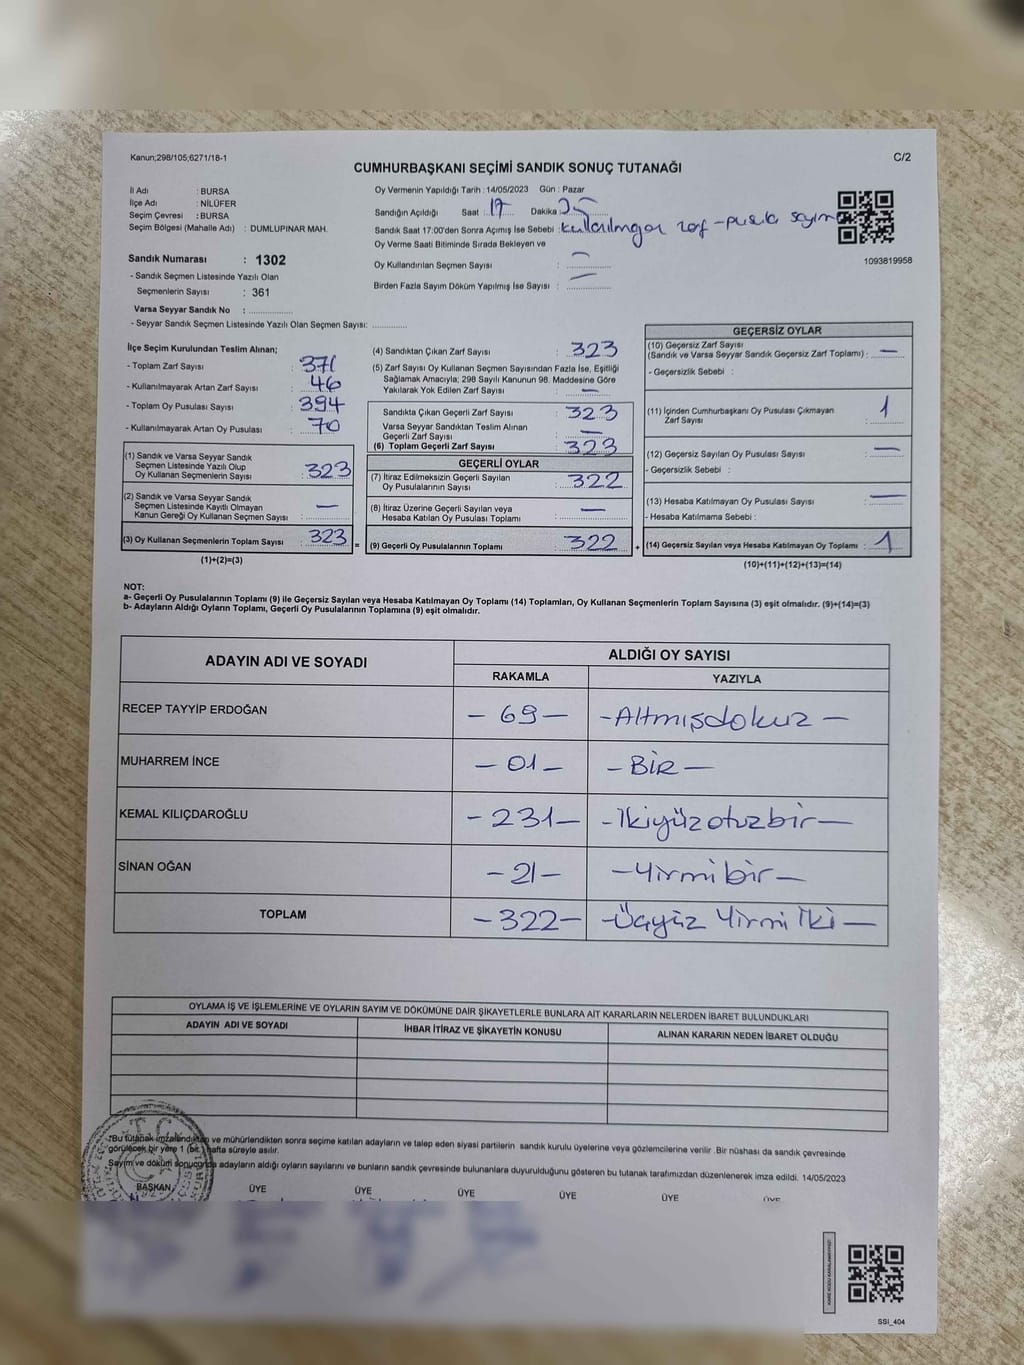 Kanun;298/105;6271/18-1
C/2
CUMHURBAŞKANI SEÇİMİ SANDIK SONUÇ TUTANAĞI
İl Adı : BURSA
İlçe Adı : NİLÜFER
Seçim Çevresi : BURSA
Seçim Bölgesi (Mahalle Adı) : DUMLUPINAR MAH.
Sandık Numarası : 1302
- Sandık Seçmen Listesinde Yazılı Olan
Seçmenlerin Sayısı : 361
Varsa Seyyar Sandık No :
- Seyyar Sandık Seçmen Listesinde Yazılı Olan Seçmen Sayısı:
Oy Vermenin Yapıldığı Tarih : 14/05/2023 Gün : Pazar
Sandığın Açıldığı Saat : 17 Dakika
Sandık Saat 17:00'den Sonra Açımış İse Sebebi : zarf - pusula sayım
Oy Verme Saati Bitiminde Sırada Bekleyen ve
Oy Kullandırılan Seçmen Sayısı : —
Birden Fazla Sayım Döküm Yapılmış İse Sayısı : —
1093819958
İlçe Seçim Kurulundan Teslim Alınan;
- Toplam Zarf Sayısı : 371
- Kullanılmayarak Artan Zarf Sayısı : 46
- Toplam Oy Pusulası Sayısı : 394
- Kullanılmayarak Artan Oy Pusulası : 70
(1) Sandık ve Varsa Seyyar Sandık
Seçmen Listesinde Yazılı Olup
Oy Kullanan Seçmenlerin Sayısı : 323
(2) Sandık ve Varsa Seyyar Sandık
Seçmen Listesinde Kayıtlı Olmayan
Kanun Gereği Oy Kullanan Seçmen Sayısı : —
(3) Oy Kullanan Seçmenlerin Toplam Sayısı : 323 =
(1)+(2)=(3)
(4) Sandıktan Çıkan Zarf Sayısı : 323
(5) Zarf Sayısı Oy Kullanan Seçmen Sayısından Fazla İse, Eşitliği
Sağlamak Amacıyla; 298 Sayılı Kanunun 98. Maddesine Göre
Yakılarak Yok Edilen Zarf Sayısı : —
Sandıkta Çıkan Geçerli Zarf Sayısı : 323
Varsa Seyyar Sandıktan Teslim Alınan
Geçerli Zarf Sayısı : —
(6) Toplam Geçerli Zarf Sayısı : 323
GEÇERLİ OYLAR
(7) İtiraz Edilmeksizin Geçerli Sayılan
Oy Pusulalarının Sayısı : 322
(8) İtiraz Üzerine Geçerli Sayılan veya
Hesaba Katılan Oy Pusulası Toplamı : —
(9) Geçerli Oy Pusulalarının Toplamı : 322 +
GEÇERSİZ OYLAR
(10) Geçersiz Zarf Sayısı
(Sandık ve Varsa Seyyar Sandık Geçersiz Zarf Toplamı) : —
- Geçersizlik Sebebi :
(11) İçinden Cumhurbaşkanı Oy Pusulası Çıkmayan
Zarf Sayısı : 1
(12) Geçersiz Sayılan Oy Pusulası Sayısı : —
- Geçersizlik Sebebi :
(13) Hesaba Katılmayan Oy Pusulası Sayısı : —
- Hesaba Katılmama Sebebi :
(14) Geçersiz Sayılan veya Hesaba Katılmayan Oy Toplamı : 1
(10)+(11)+(12)+(13)=(14)
NOT:
a- Geçerli Oy Pusulalarının Toplamı (9) ile Geçersiz Sayılan veya Hesaba Katılmayan Oy Toplamı (14) Toplamları, Oy Kullanan Seçmenlerin Toplam Sayısına (3) eşit olmalıdır. (9)+(14)=(3)
b- Adayların Aldığı Oyların Toplamı, Geçerli Oy Pusulalarının Toplamına (9) eşit olmalıdır.
ADAYIN ADI VE SOYADI ALDIĞI OY SAYISI
RAKAMLA YAZIYLA
RECEP TAYYİP ERDOĞAN - 69 - - Altmışdokuz -
MUHARREM İNCE - 01 - - BİR -
KEMAL KILIÇDAROĞLU - 231 - - İkiyüzotuzbir -
SİNAN OĞAN - 21 - - Yirmibir -
TOPLAM - 322 - - Üçyüz Yirmi İki -
OYLAMA İŞ VE İŞLEMLERİNE VE OYLARIN SAYIM VE DÖKÜMÜNE DAİR ŞİKAYETLERLE BUNLARA AİT KARARLARIN NELERDEN İBARET BULUNDUKLARI
ADAYIN ADI VE SOYADI İHBAR İTİRAZ VE ŞİKAYETİN KONUSU ALINAN KARARIN NEDEN İBARET OLDUĞU
*Bu tutanak imzalandıktan ve mühürlendikten sonra seçime katılan adayların ve talep eden siyasi partilerin sandık kurulu üyelerine veya gözlemcilerine verilir. Bir nüshası da sandık çevresinde
görülecek bir yere 1 (bir) hafta süreyle asılır.
Sayım ve döküm sonucunda adayların aldığı oyların sayılarını ve bunların sandık çevresinde bulunanlara duyurulduğunu gösteren bu tutanak tarafımızdan düzenlenerek imza edildi. 14/05/2023
BAŞKAN ÜYE ÜYE ÜYE ÜYE ÜYE ÜYE
SSI_404